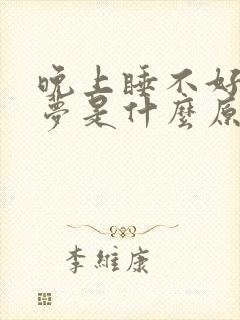 晚上睡不好
夢是什麼原
李維康